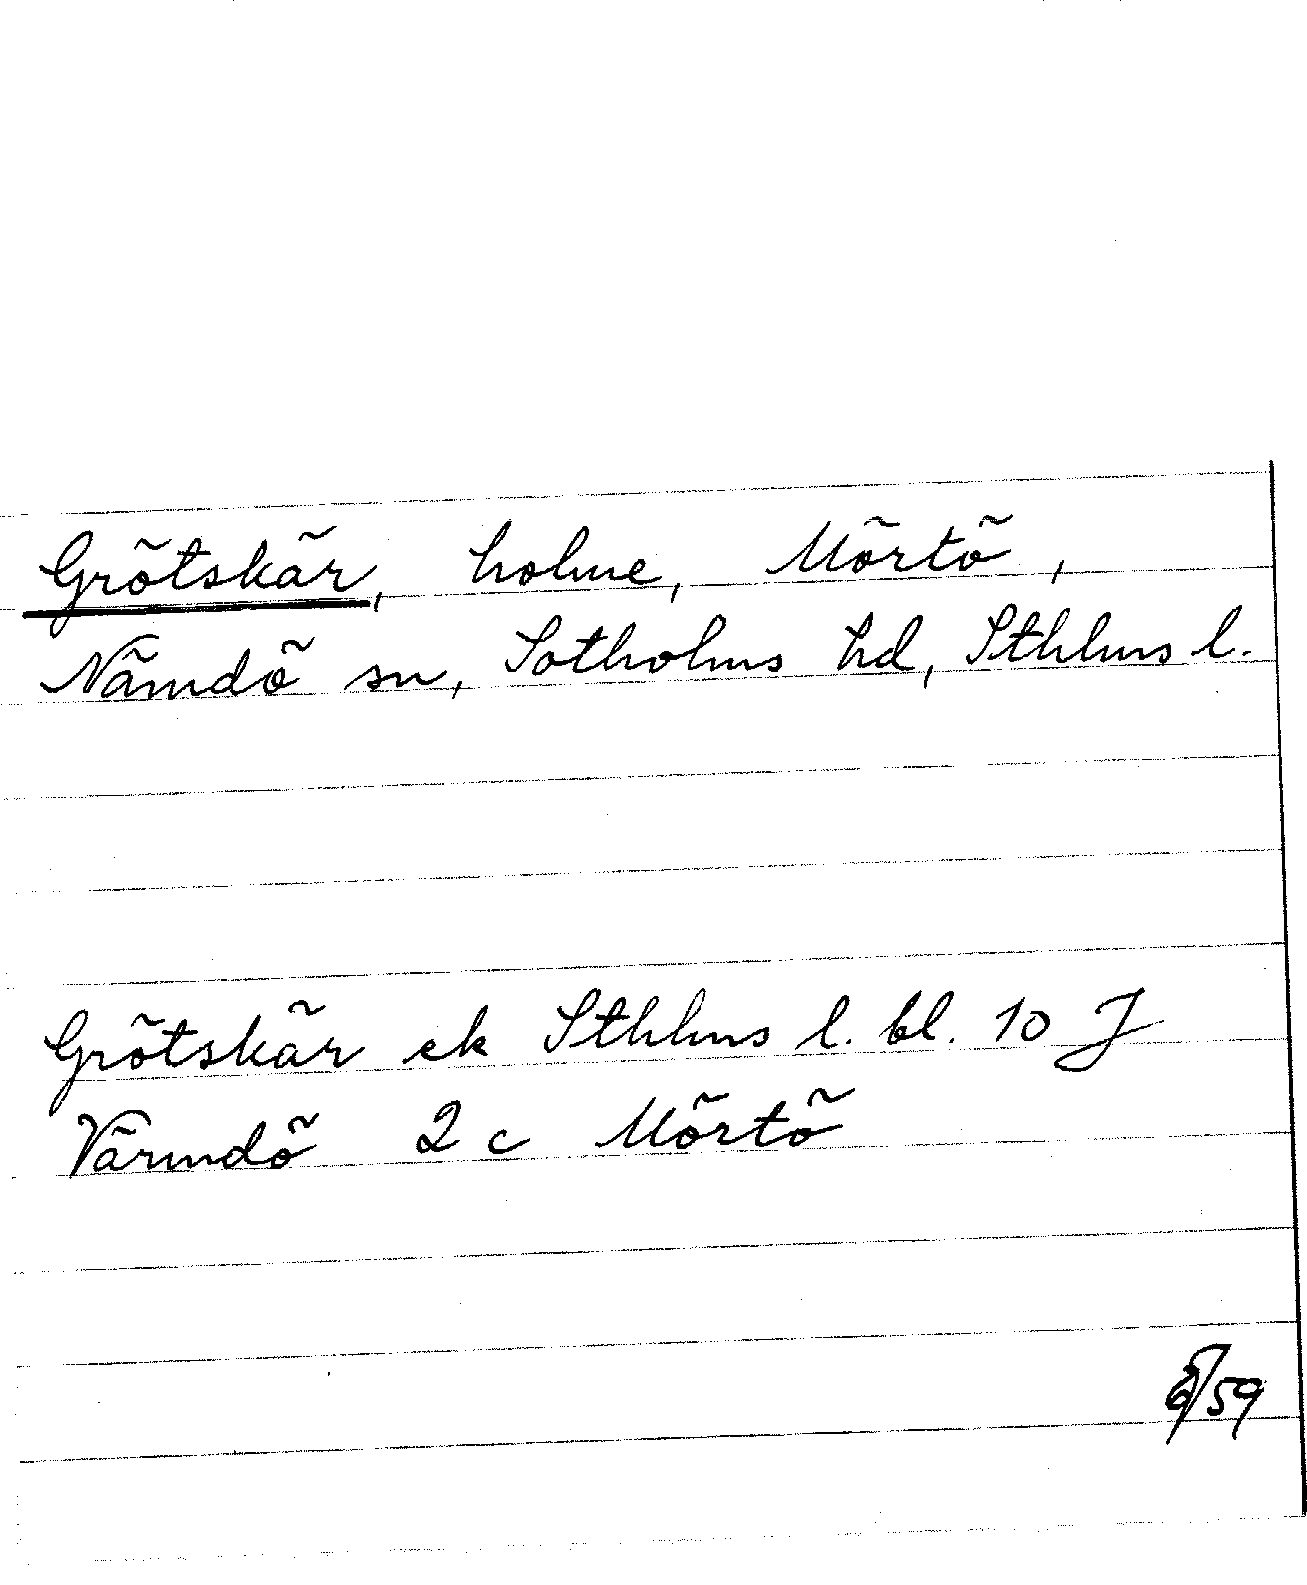 Grötskär, holme, Mörtö,
Nämdö sn, Sotholms hd, Sthlms l.
Grötskär ek Sthlms l. bl. 10 J
Värmdö 2 c Mörtö
/59